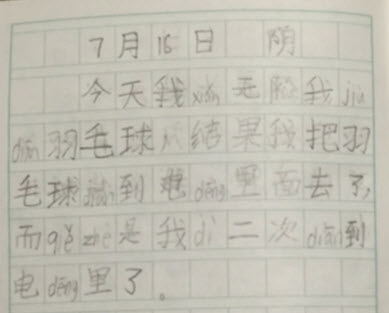 7月16日 阴
今天我xián无聊我jiù
diān羽毛球 结果我把羽
毛球diān到电dēng里面去了,
而qiě zhè是我dì二次diān到
电dēng里了。